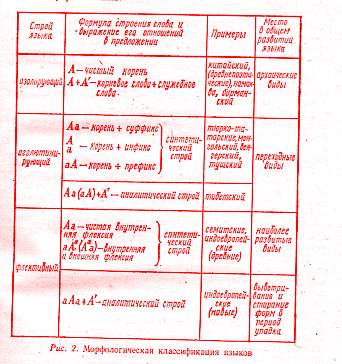 Строй языка
Формула строения слова и выражение его отношений в предложении
Примеры
Место в общем развитии языка
изолирующий
А – чистый корень
А + А' – корневое слова + служебное слова
китайский, (древнепоэтические), намаква, бирманский
архаические виды
агглютинирующий
Аа – корень + суффикс
А
а – корень + инфикс
аА – корень + префикс
синтетический строй
тюрко-татарские, монгольский, венгерский, тушский
переходные виды
Аа (аА) + А' – аналитический строй
тибетский
флективный
Аа – чистая внутренняя флексия
аАᵃ (Аᵃа) – внутренняя и внешняя флексия
синтетический строй
семитские, индоевропейские (древние)
наиболее развитые виды
аАа + А' – аналитический строй
индоевропейские (новые)
выветривания и стирание форм в период упадка
Рис. 2. Морфологическая классификация языков